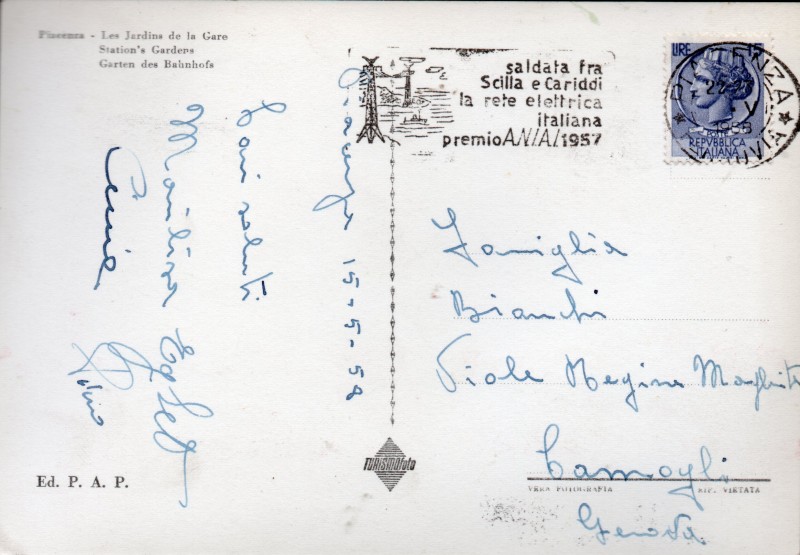 Piacenza - Les Jardins de la Gare
Station's Gardens
Garten des Bahnhofs
saldata fra
Scilla e Cariddi
la rete elettrica
italiana
premio A.N.I.A.I 1957
LIRE 15
REPVBBLICA
ITALIANA
PIACENZA
FERROVIA
Piacenza 15-5-58
Cari saluti
Pino
Famiglia
Bianchi
Viale Regina Margherita
Camogli
Genova
TURISMOfoto
VERA FOTOGRAFIA
RIP. VIETATA
Ed. P. A. P.